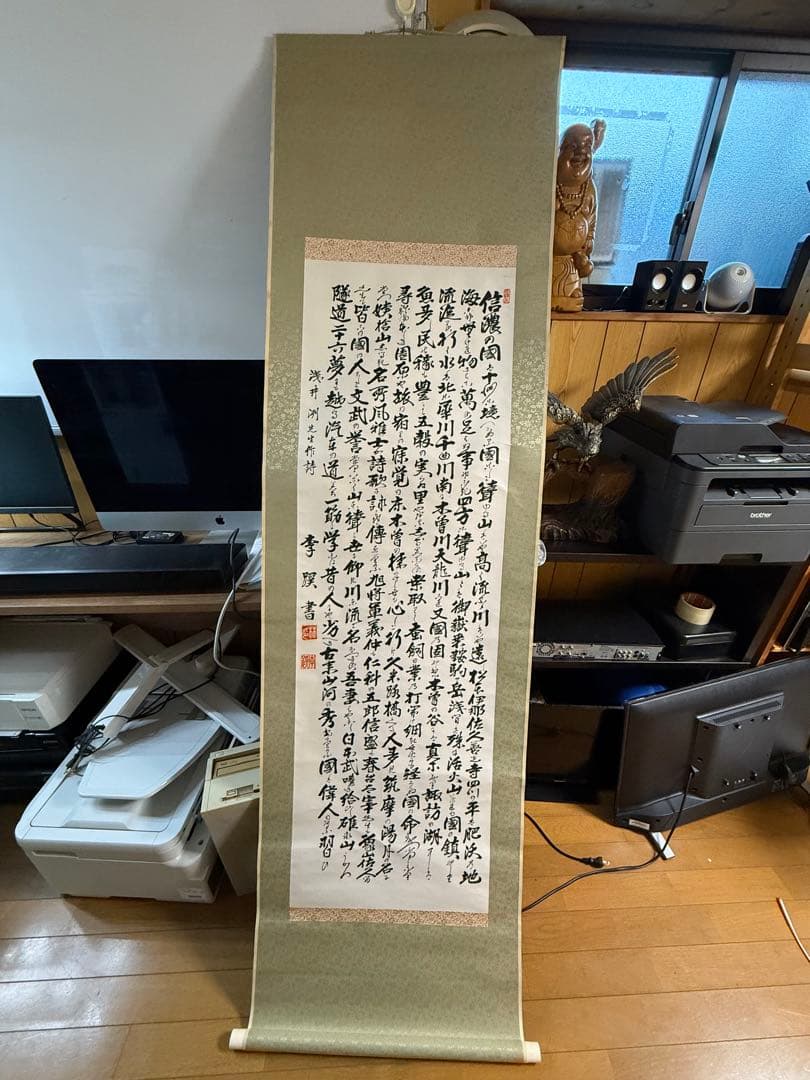 信濃の國は十州に境つらぬる國にして聳ゆる山はいや高く流るる川はいや遠し松本伊那佐久善光寺四つの平は肥沃の地
海こそなけれ物さわに萬足らわぬ事ぞなき四方に聳ゆる山々は御嶽乗鞍駒ヶ岳浅間は殊に活火山いづれも國の鎮めなり
流れ淀まず行く水は北に犀川千曲川南に木曽川天龍川これ又國の固めなり木曽の谷には真木茂り諏訪の湖には
魚多し民の稼ぎも豊かにて五穀の実らぬ里やあるしかのみならず桑取りて蚕飼の業の打ひらけ細きよすがも軽からぬ國の命を繋ぐなり
尋ねまほしき園原や旅の宿りの寐覚の床木曽の棧かけし世も心して行け久米路橋くる人多き筑摩の湯月の名に
たつ姨捨山しるき名所と風雅士が詩歌に詠てぞ傳えたる旭将軍義仲も仁科の五郎信盛も春台太宰先生も
皆此國の人にして文武の誉たぐいなく山と聳えて世に仰ぎ川と流れて名は尽ず吾妻はやとし日本武嘆き給いし碓氷山うがつ
隧道二十六夢にも越ゆる汽車の道みち一筋に学びなば昔の人にや劣るべき古来山河の秀でたる國は偉人のある習ひ
浅井洌先生作詩
李蹊書
brother